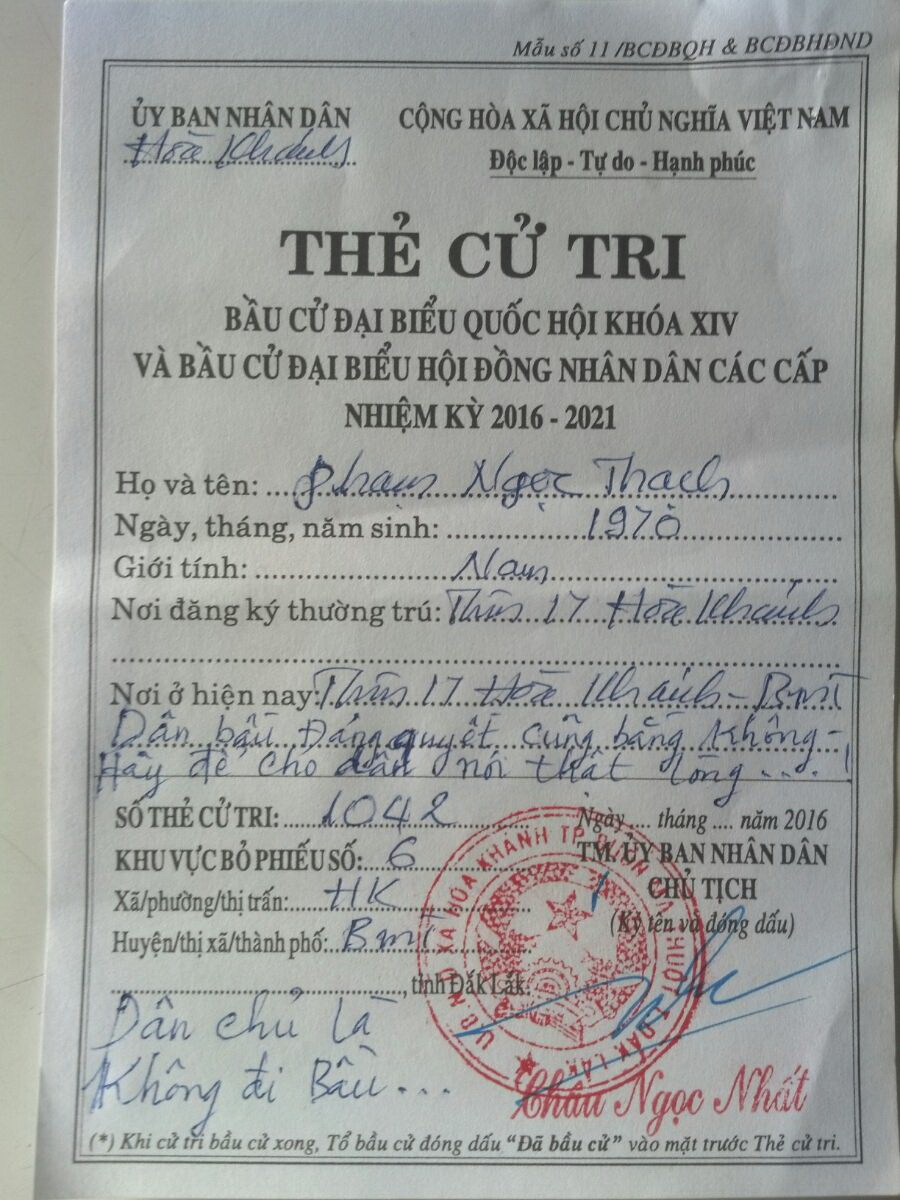 Mẫu số 11/BCĐBQH & BCĐBHĐND
ỦY BAN NHÂN DÂN
Hòa Khánh
CỘNG HÒA XÃ HỘI CHỦ NGHĨA VIỆT NAM
Độc lập - Tự do - Hạnh phúc
THẺ CỬ TRI
BẦU CỬ ĐẠI BIỂU QUỐC HỘI KHÓA XIV
VÀ BẦU CỬ ĐẠI BIỂU HỘI ĐỒNG NHÂN DÂN CÁC CẤP
NHIỆM KỲ 2016 - 2021
Họ và tên: Phạm Ngọc Thạch
Ngày, tháng, năm sinh: 1970
Giới tính: Nam
Nơi đăng ký thường trú: Thôn 17 Hòa Khánh
Nơi ở hiện nay: Thôn 17 Hòa Khánh - Bmt
Dân bầu Đảng quyết cũng bằng không -
Hãy để cho dân nói thật lòng....!
SỐ THẺ CỬ TRI: 1042
KHU VỰC BỎ PHIẾU SỐ: 6
Xã/phường/thị trấn: HK
Huyện/thị xã/thành phố: Bmt
, tỉnh Đắk Lắk.
Ngày .... tháng .... năm 2016
TM. ỦY BAN NHÂN DÂN
CHỦ TỊCH
(Ký tên và đóng dấu)
U.B.N.D XÃ HÒA KHÁNH TP. BUÔN MA THUỘT T. ĐẮK LẮK
Châu Ngọc Nhất
Dân chủ là
Không đi Bầu...
(*) Khi cử tri bầu cử xong, Tổ bầu cử đóng dấu "Đã bầu cử" vào mặt trước Thẻ cử tri.